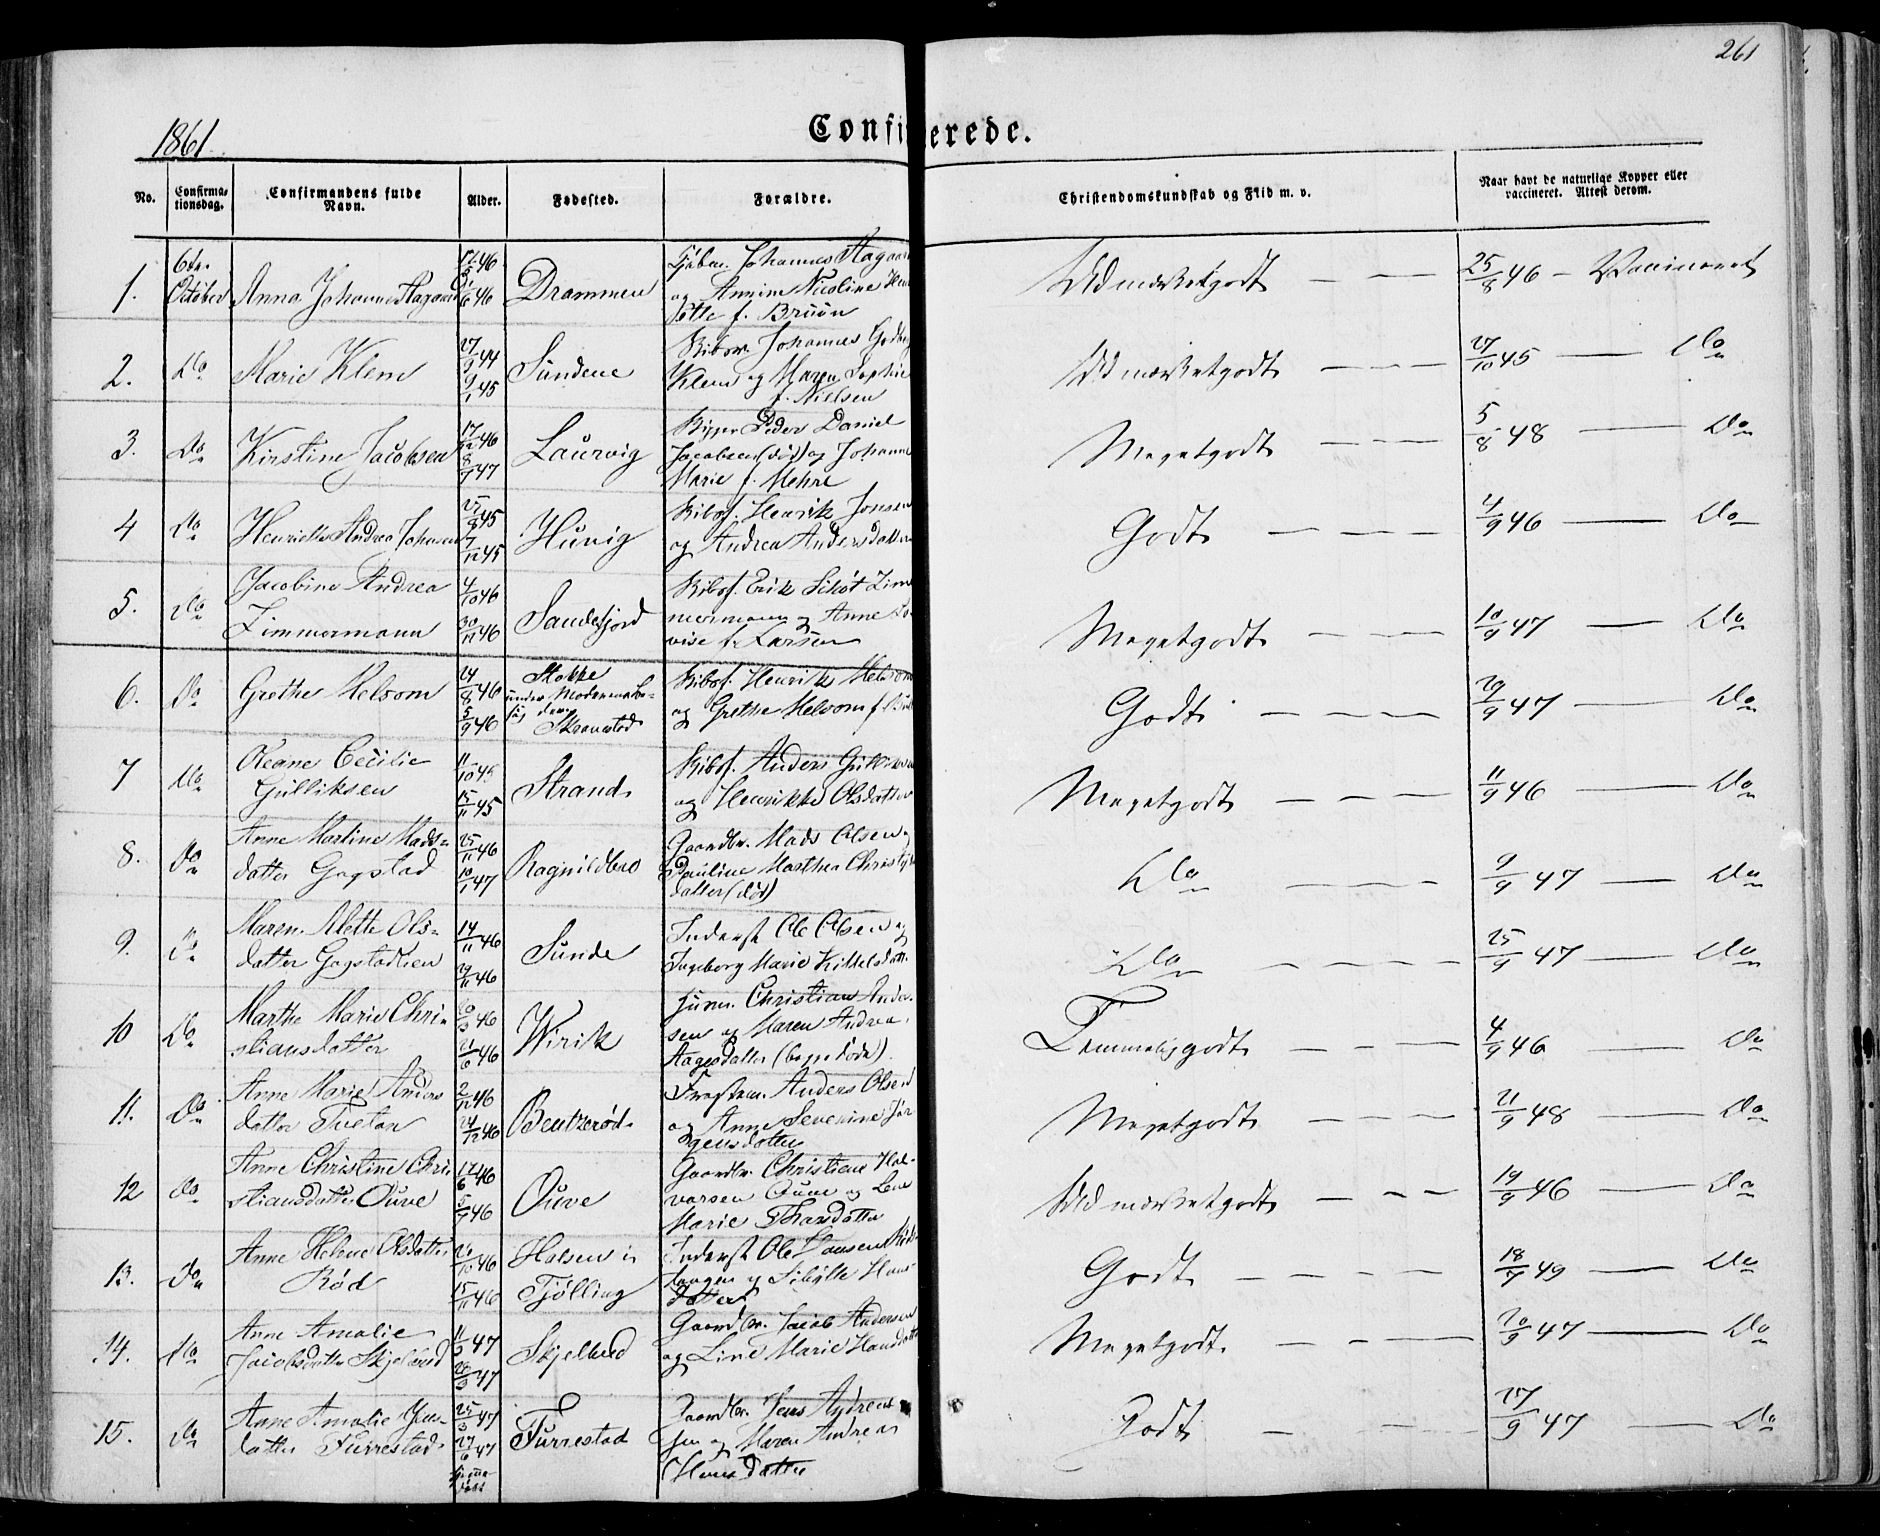 261
1861.
Confirmerede.
No. Confirmationsdag. Confirmandens fulde Navn. Alder. Fødested. Forældre. Christendomskundskab og Flid m. v. Naar havt de naturlige Kopper eller vaccineret. Attest derom.
1. 6te October Anna Johanne Aagaard 46 46 Drammen
Johannes Aagaard
og Annine Nicoline
f. Bruun
Udmærketgodt 25/8 46 Vaccineret
2. Do Marie Klem 27/9 44 9/1 45 Sundene
Skibsr. Johannes
Klem og Maren Sophie
f. Nielsen
Udmærketgodt 27/10 45 Do
3. Do Kirstine Jacobsen 17/12 46 8/7 47 Laurvig
Peder Daniel
Jacobsen (død) og Johanne
Marie f. Mehre
Megetgodt 5/8 48 Do
4 Do Henriette Andrea Johnsen 45 7/12 45 Huvig
Skibsf. Henrik Jonsen
og Andrea Andersdatter
Godt 46 Do
5. Do Jacobine Andrea
Zimmermann 4/10 46 30/11 46 Sandefjord
Skibsf. Erik Schøt Zim
mermann og Anne Lo
vise f. Larsen
Megetgodt 10/9 47 Do
6. Do Grethe Melsom 24/8 46 5/9 46 Stokke
under
Skranestad
Skibsf. Henrik Melsom
og Grethe Melsom f.
Godt 29/9 47 Do
7 Do Oleane Cecilie
Gulliksen 11/10 45 15/11 45 Strand
Skibsf. Anders Gulliksen
og Henrikke Olsdatter
Megetgodt 11/9 46 Do
8. Do Anne Martine Mads-
datter Gogstad 25/11 46 10/1 47 Ragnildbro
Gaardbr. Mads Olsen og
Pauline Marthea
datter (død)
Do 9/9 47 Do
9. Do Maren Mette Ols-
datter Gogstadlien 14/11 46 29/11 46 Sunde
Inderst Ole Olsen og
Ingeborg Marie Kittelsdatt.
Do 25/9 47 Do
10 Do Marthe Marie Chri-
stiansdatter 46 21/6 46 Virik
Christian Ander-
sen og Maren Andrea
Aagesdatter (begge døde).
Temmeliggodt 4/9 46 Do
11. Do Anne Marie Anders
datter Tveten 2/12 46 24/12 46 Bentzerød
Anders Olsen
og Anne Severine Jør-
gensdatter
Megetgodt 21/9 48 Do
12 Do Anne Christine Chri
stiansdatter Ouve 17/6 46 5/7 46 Ouve
Gaardbr. Christian Hal-
vorsen Ouve og Lene
Marie Thorsdatter
Udmærketgodt 19/9 46 Do
13. Do Anne Helene Olsdatter
Rød 26/10 46 15/11 46 Holsen i
Tjølling
Inderst Ole Hansen Rød-
og Sibylle Hans-
datter
Godt 18/7 49 Do
14. Do Anne Amalie
Jacobsdatter Skjelbred 11/2 47 28/3 47 Skjelbred
Gaardbr. Jacob Andersen
og Line Marie Hansdatter
Megetgodt. 20/9 47 Do
15. Do Anne Amalie Jens-
datter Furrestad 25/3 47 27/6 47 Furrestad
Gaardbr. Jens Andreas-
sen og Maren Andrea
Hansdatter
Godt 27/9 47 Do